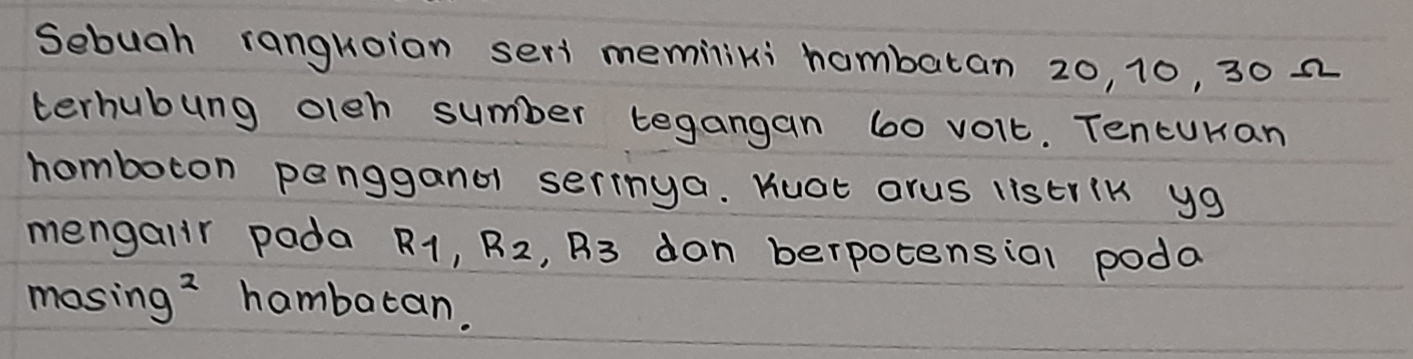 Sebuah rangkaian seri memiliki hambatan 20, 10, 30 Ω
terhubung oleh sumber tegangan 60 volt. Tentukan
hambatan pengganti serinya. Kuat arus listrik yg
mengalir pada R1, R2, R3 dan berpotensial pada
masing² hambatan.